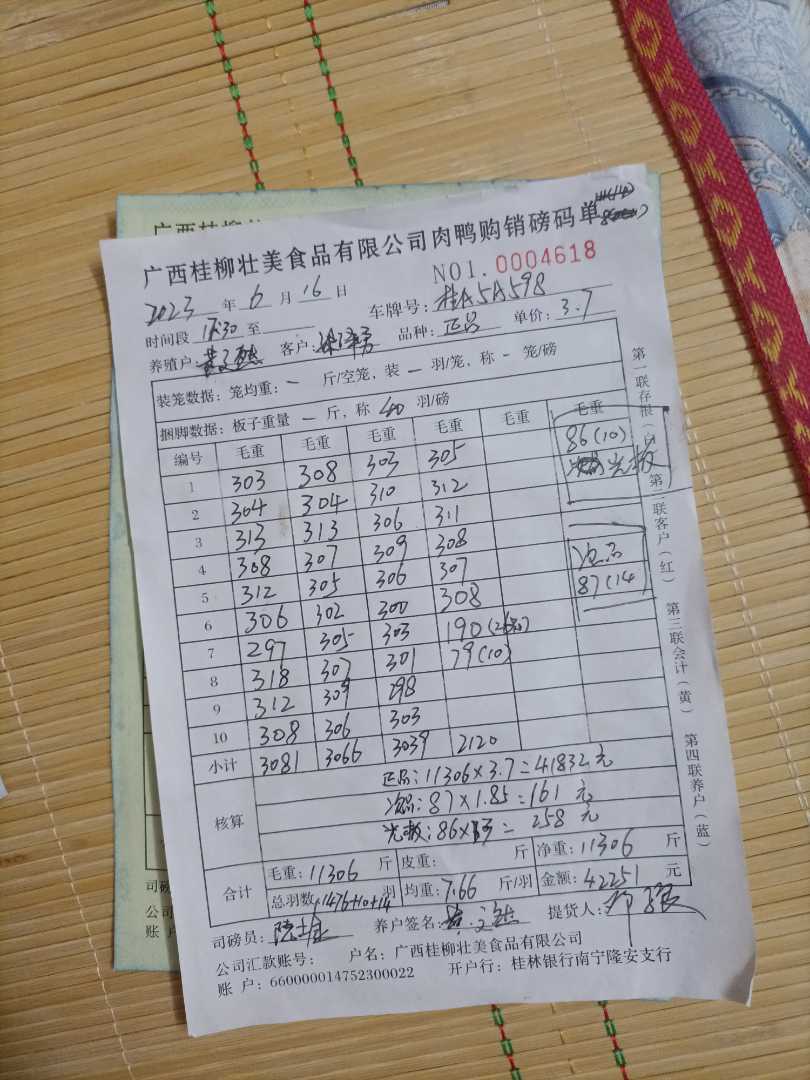 广西桂柳壮美食品有限公司肉鸭购销磅码单
NO1. 0004618
2023 年 6 月 16 日 车牌号: 桂A5A598
时间段 17:30 至
养殖户: 客户: 品种: 正品 单价: 3.7
装笼数据: 笼均重: - 斤/空笼, 装 - 羽/笼, 称 - 笼/磅
捆脚数据: 板子重量 - 斤, 称 40 羽/磅
编号 毛重 毛重 毛重 毛重 毛重 毛重
1 303 308 303 305 86(10)
2 304 304 310 312 光板
3 313 313 306 311
4 308 307 309 308 次品
5 312 305 306 307 87(14
6 306 302 300 308
7 297 305 303 190(26羽)
8 318 307 301 79(10)
9 312 309 298
10 308 306 303
小计 3081 3066 3039 2120
核算
正品: 11306×3.7=41832元
次品: 87×1.85=161 元
光板: 86× = 258 元
合计
毛重: 11306 斤 皮重: 斤 净重: 11306 斤
总羽数: 1476+10+14 羽 均重: 7.66 斤/羽 金额: 42251 元
司磅员: 养户签名: 提货人:
公司汇款账号: 户名: 广西桂柳壮美食品有限公司
账 户: 660000014752300022 开户行: 桂林银行南宁隆安支行
第一联存根(
第二联客户(红)
第三联会计(黄)
第四联养户(蓝)
广西桂柳
司磅
公司
账 户